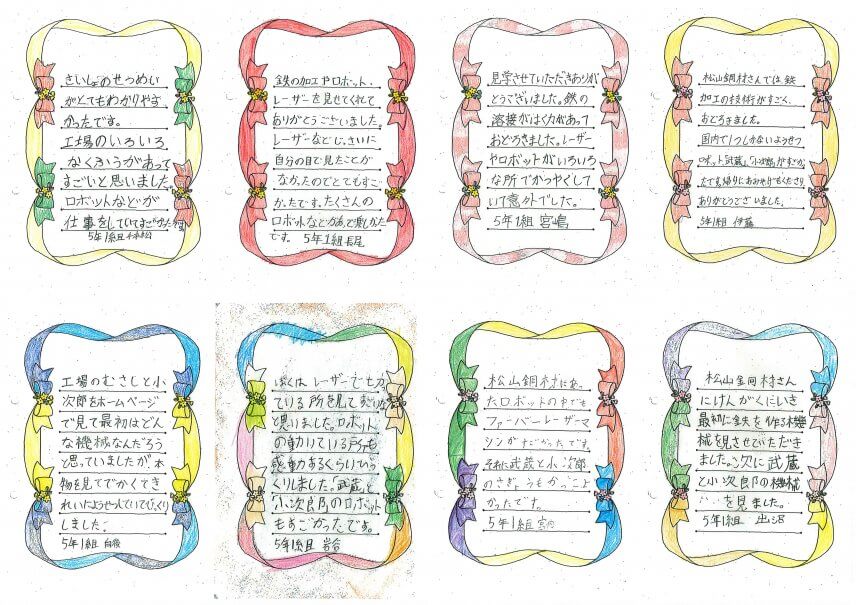 さいしょのせつめい
がとてもわかりやす
かったです。
工場のいろいろ
なくふうがあって
すごいと思いました。
ロボットなどが
仕事をしていてすごかったです
5年1組
鉄の加工やロボット、
レーザーを見せてくれて
ありがとうございました。
レーザーなどじっさいに
自分の目で見たことが
なかったのでとてもすご
かったです。たくさんの
ロボットなどがあって楽しかった
です。 5年1組 長尾
見学させていただきありが
とうございました。鉄の
溶接がはく力があって
おどろきました。レーザー
やロボットがいろいろ
な所でかつやくして
いて意外でした。
5年1組 宮嶋
松山鋼材さんでは、鉄
加工の技術がすごく、
おどろきました。
国内で1つしかないようせつ
ロボット武蔵
帰りにおみやげもくださり
ありがとうございました。
5年1組 伊藤
工場のむさしと小
次郎をホームページ
で見て最初はどん
な機械なんだろう
と思っていましたが、本
物を見てでかくてき
れいにようせつしていてびっくり
しました。
5年1組
ぼくは、レーザーで
ている所を見てすごいな
と思いました。ロボット
の動いている所も
感動するくらいびっ
くりしました。「武蔵」と
小次郎のロボット
もすごかったです。
5年1組 岩谷
松山鋼材にあっ
たロボットの中でも
ファーバーレーザーマ
シンがすごかったです。
それに武蔵と小次郎
のさぎょうもかっこよ
かったです。
5年1組 宮内
松山鋼材さん
にけんがくにいき
最初に鉄を作る機
械を見させていただき
ました。次に武蔵
と小次郎の機械
を見ました。
5年1組 出沢